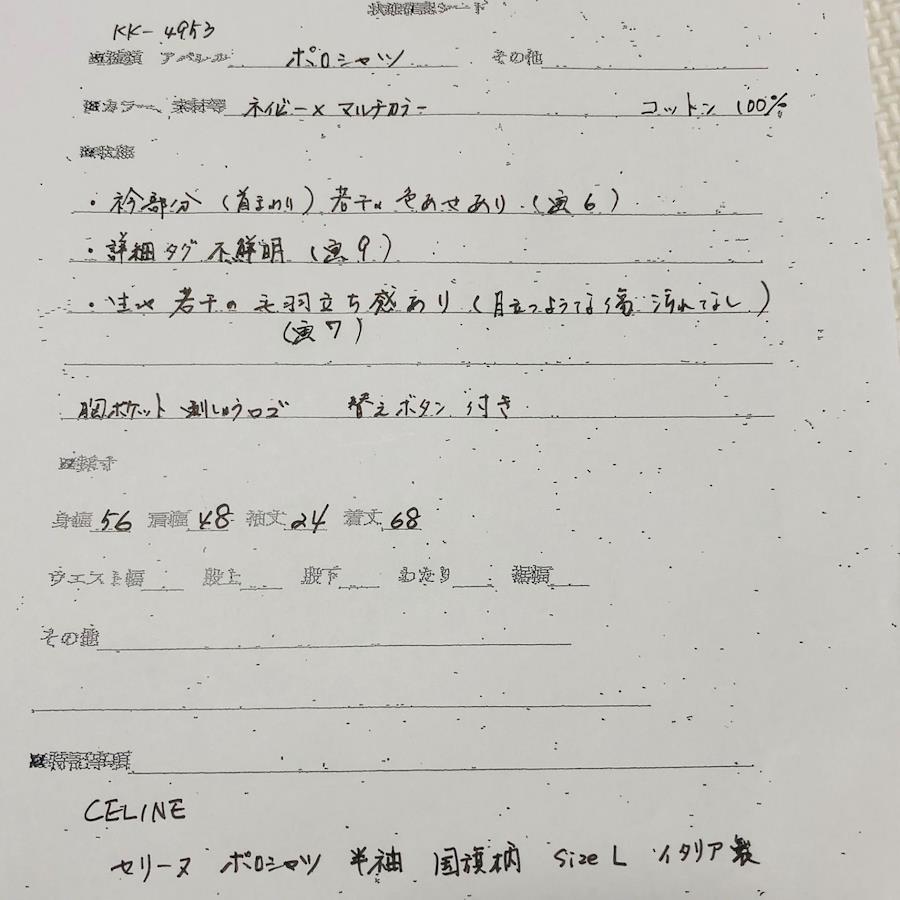 状態確認シート
KK-4953
■種類 アパレル ポロシャツ その他
■カラー、素材等 ネイビー×マルチカラー コットン 100%
■状態
・衿部分(首まわり)若干の色あせあり(画6)
・詳細タグ不鮮明(画9)
・生地若干の毛羽立ち感あり(目立つような傷汚れてなし)
(画7)
胸ポケット刺しゅうロゴ 替えボタン付き
■採寸
身幅56 肩幅48 袖丈24 着丈68
ウエスト幅 股上 股下 わたり 裾幅
その他
■特記事項
CELINE
セリーヌ ポロシャツ 半袖 国旗柄 size L イタリア製